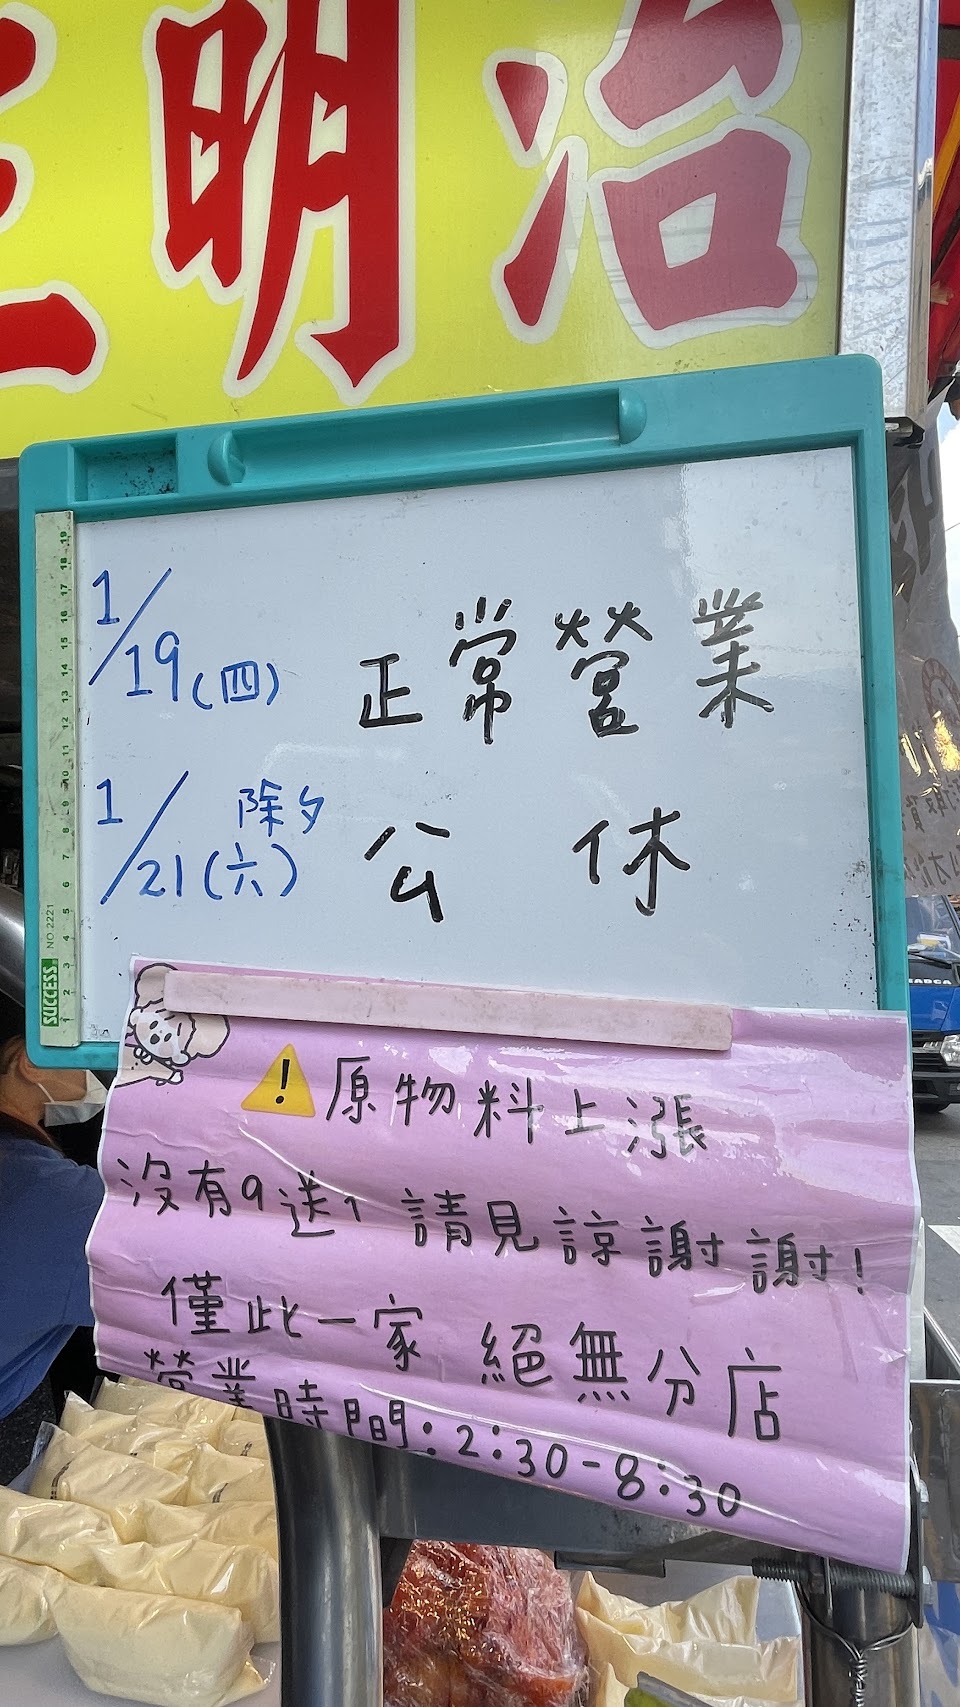 明治
1/19(四) 正常營業
1/21(六) 除夕 公休
原物料上漲
沒有9送1 請見諒謝謝!
僅此一家 絕無分店
營業時間:2:30-8:30
SUCCESS NO.2221
1 2 3 4 5 6 7 8 9 10 11 12 13 14 15 16 17 18 19